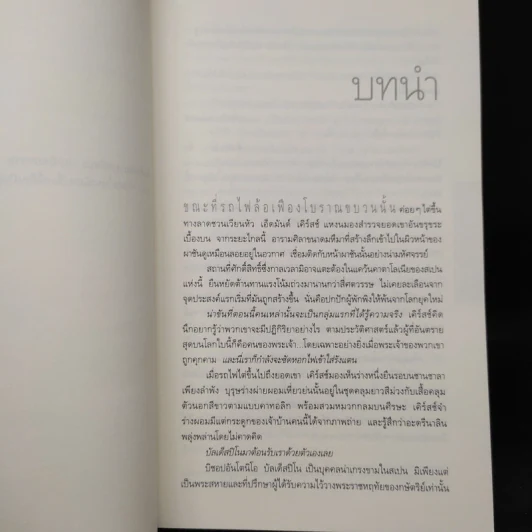 บทนำ
ขณะที่รถไฟล้อเฟืองโบราณขบวนนั้น ค่อยๆ ไต่ขึ้น
ทางลาดชวนเวียนหัว เอ็ดมันด์ เคิร์สช์ แหงนมองสำรวจยอดเขาอันขรุขระ
เบื้องบน จากระยะไกลนี้ อารามศิลาขนาดมหึมาที่สร้างลึกเข้าไปในผิวหน้าของ
ผาชันดูเหมือนลอยอยู่ในอวกาศ เชื่อมติดกับหน้าผาชันนั้นอย่างน่ามหัศจรรย์
สถานที่ศักดิ์สิทธิ์ซึ่งกาลเวลามิอาจแตะต้องในแคว้นคาตาโลเนียของสเปน
แห่งนี้ ยืนหยัดต้านทานแรงโน้มถ่วงมานานกว่าสี่ศตวรรษ ไม่เคยละเลือนจาก
จุดประสงค์แรกเริ่มที่มันถูกสร้างขึ้น นั่นคือปกปักผู้พักพิงให้พ้นจากโลกยุคใหม่
น่าขันที่ตอนนี้คนเหล่านั้นจะเป็นกลุ่มแรกที่ได้รู้ความจริง เคิร์สช์คิด
นึกอยากรู้ว่าพวกเขาจะมีปฏิกิริยาอย่างไร ตามประวัติศาสตร์แล้วผู้ที่อันตราย
สุดบนโลกใบนี้ก็คือคนของพระเจ้า...โดยเฉพาะอย่างยิ่งเมื่อพระเจ้าของพวกเขา
ถูกคุกคาม และนี่เราก็กำลังจะซัดหอกไฟเข้าใส่รังแตน
เมื่อรถไฟไต่ขึ้นไปถึงยอดเขา เคิร์สช์มองเห็นร่างหนึ่งยืนรอบนชานชาลา
เพียงลำพัง บุรุษร่างผ่ายผอมเหี่ยวย่นนั้นอยู่ในชุดคลุมยาวสีม่วงกับเสื้อคลุม
ตัวนอกสีขาวตามแบบคาทอลิก พร้อมสวมหมวกกลมบนศีรษะ เคิร์สช์จำ
ร่างผอมมีแต่กระดูกของเจ้าบ้านคนนี้ได้จากภาพถ่าย และรู้สึกว่าอะดรีนาลิน
พลุ่งพล่านโดยไม่คาดคิด
บัลเด็สปิโนมาต้อนรับเราด้วยตัวเองเลย
บิชอปอันโตนิโอ บัลเด็สปิโน เป็นบุคคลน่าเกรงขามในสเปน มิเพียงแต่
เป็นพระสหายและที่ปรึกษาผู้ได้รับความไว้วางพระราชหฤทัยของกษัตริย์เท่านั้น